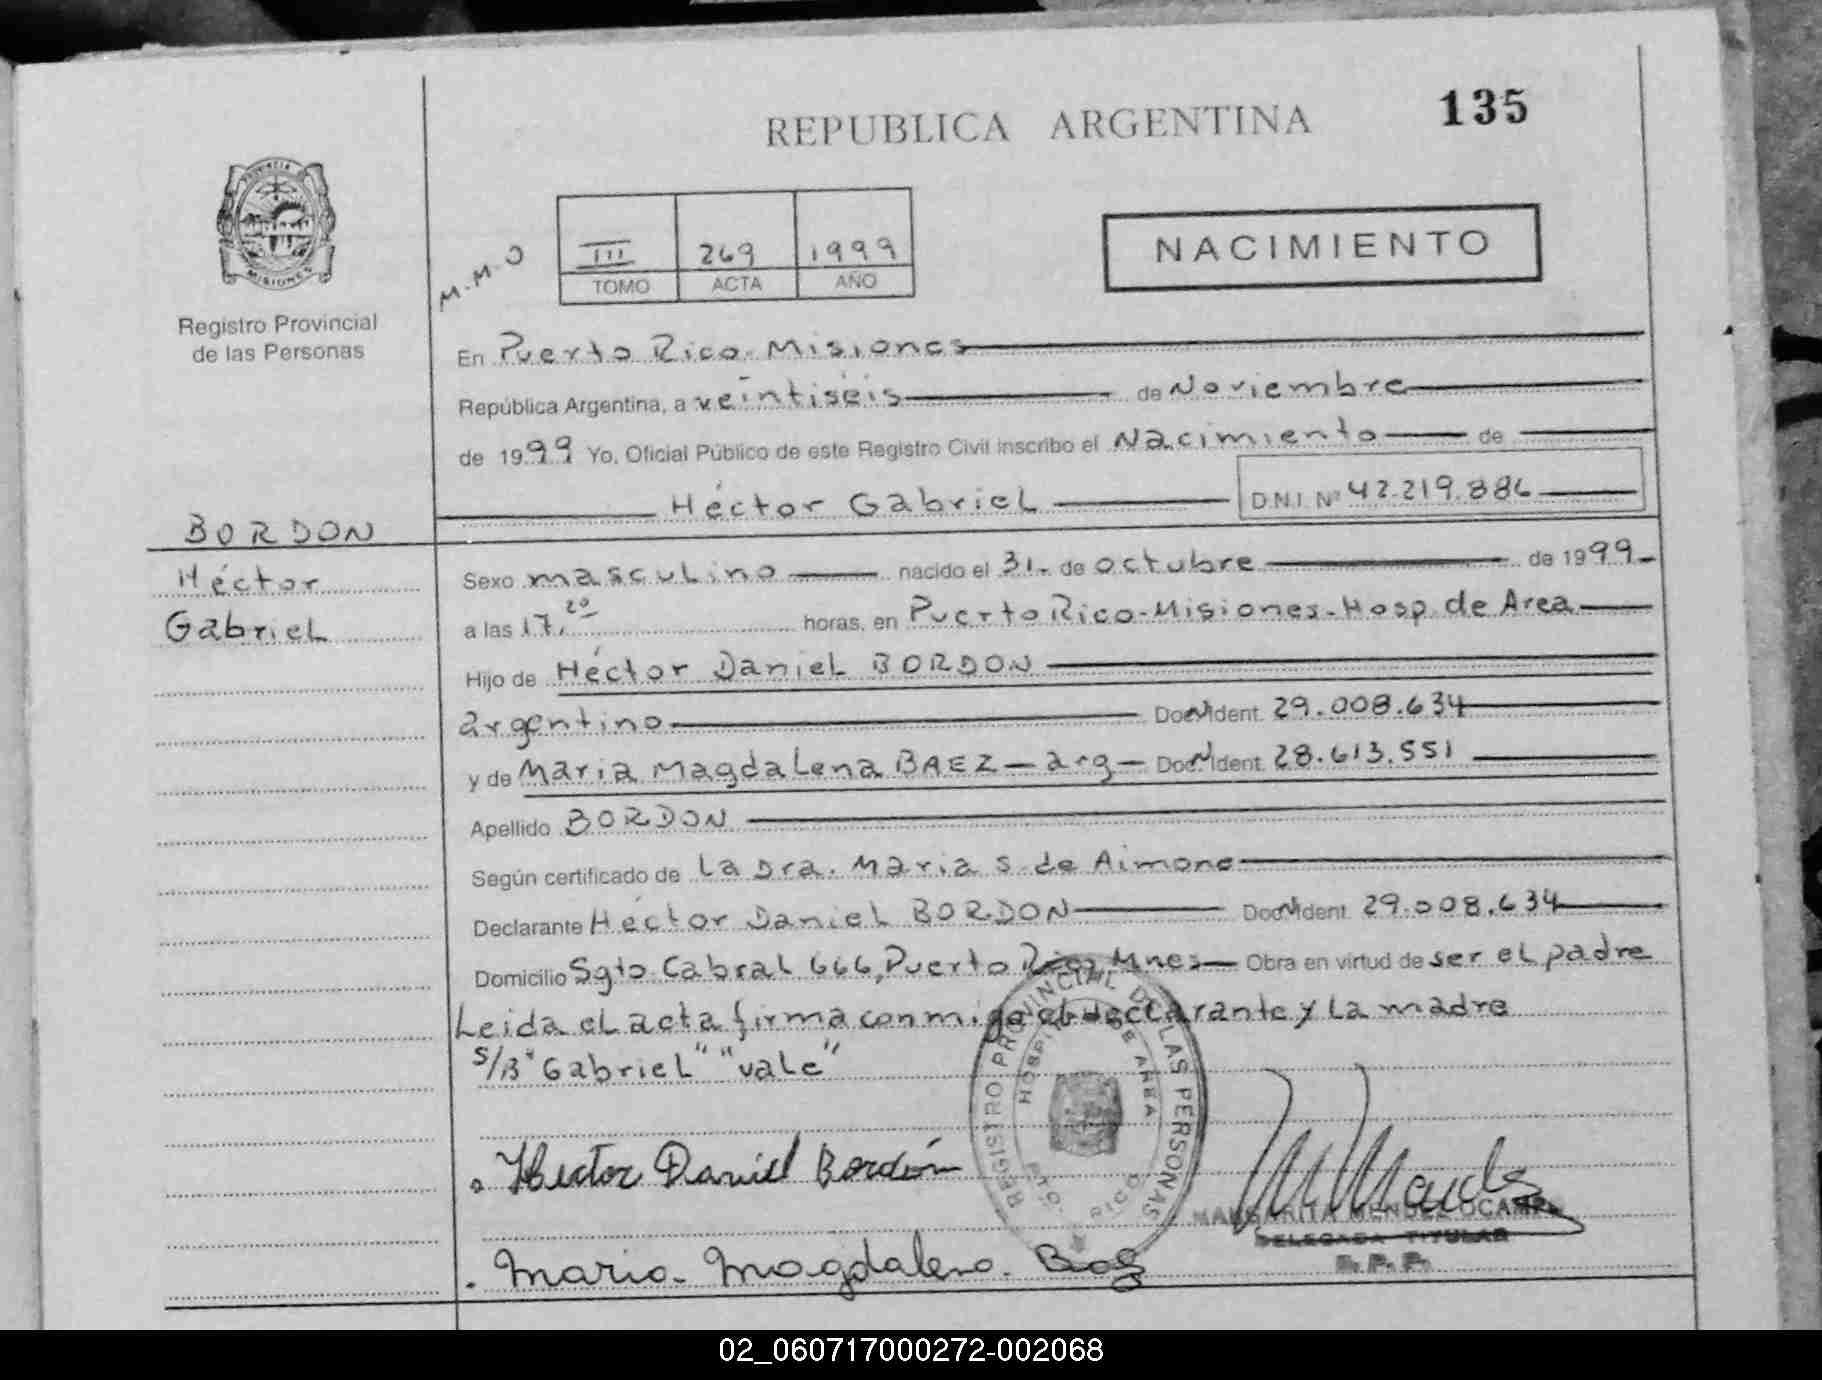 REPUBLICA ARGENTINA
135
PROVINCIA DE
MISIONES
Registro Provincial
de las Personas
M.M.O
III 269 1999
TOMO ACTA AÑO
NACIMIENTO
En Puerto Rico-Misiones
República Argentina, a veintiséis de Noviembre
de 1999 Yo, Oficial Público de este Registro Civil inscribo el Nacimiento de
Héctor Gabriel D.N.I. Nº 42.219.886
BORDON
Héctor
Gabriel
Sexo masculino nacido el 31- de octubre de 1999-
a las 17,20 horas, en Puerto Rico-Misiones-Hosp. de Area
Hijo de Héctor Daniel BORDON
argentino Doc. Ident. 29.008.634
y de Maria Magdalena BAEZ - arg - Doc. Ident. 28.613.551
Apellido BORDON
Según certificado de La Dra. Maria S. de Aimone
Declarante Héctor Daniel BORDON Doc. Ident. 29.008.634
Domicilio Sgto. Cabral 666, Puerto Rico, Mnes- Obra en virtud de ser el padre
Leida el acta firma conmigo el declarante y La madre
S/B "Gabriel" "vale"
REGISTRO PROVINCIAL DE LAS PERSONAS
HOSPITAL DE AREA
PTO. RICO
Hector Daniel Bordón
MARGARITA MENDEZ OCAMPO
DELEGADA TITULAR
R.P.P.
Maria Magdalena
02_060717000272-002068